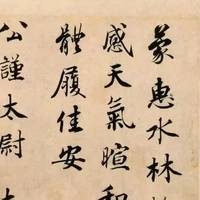 蒙惠水林檎
感天氣暄和
體履佳安
公謹太尉